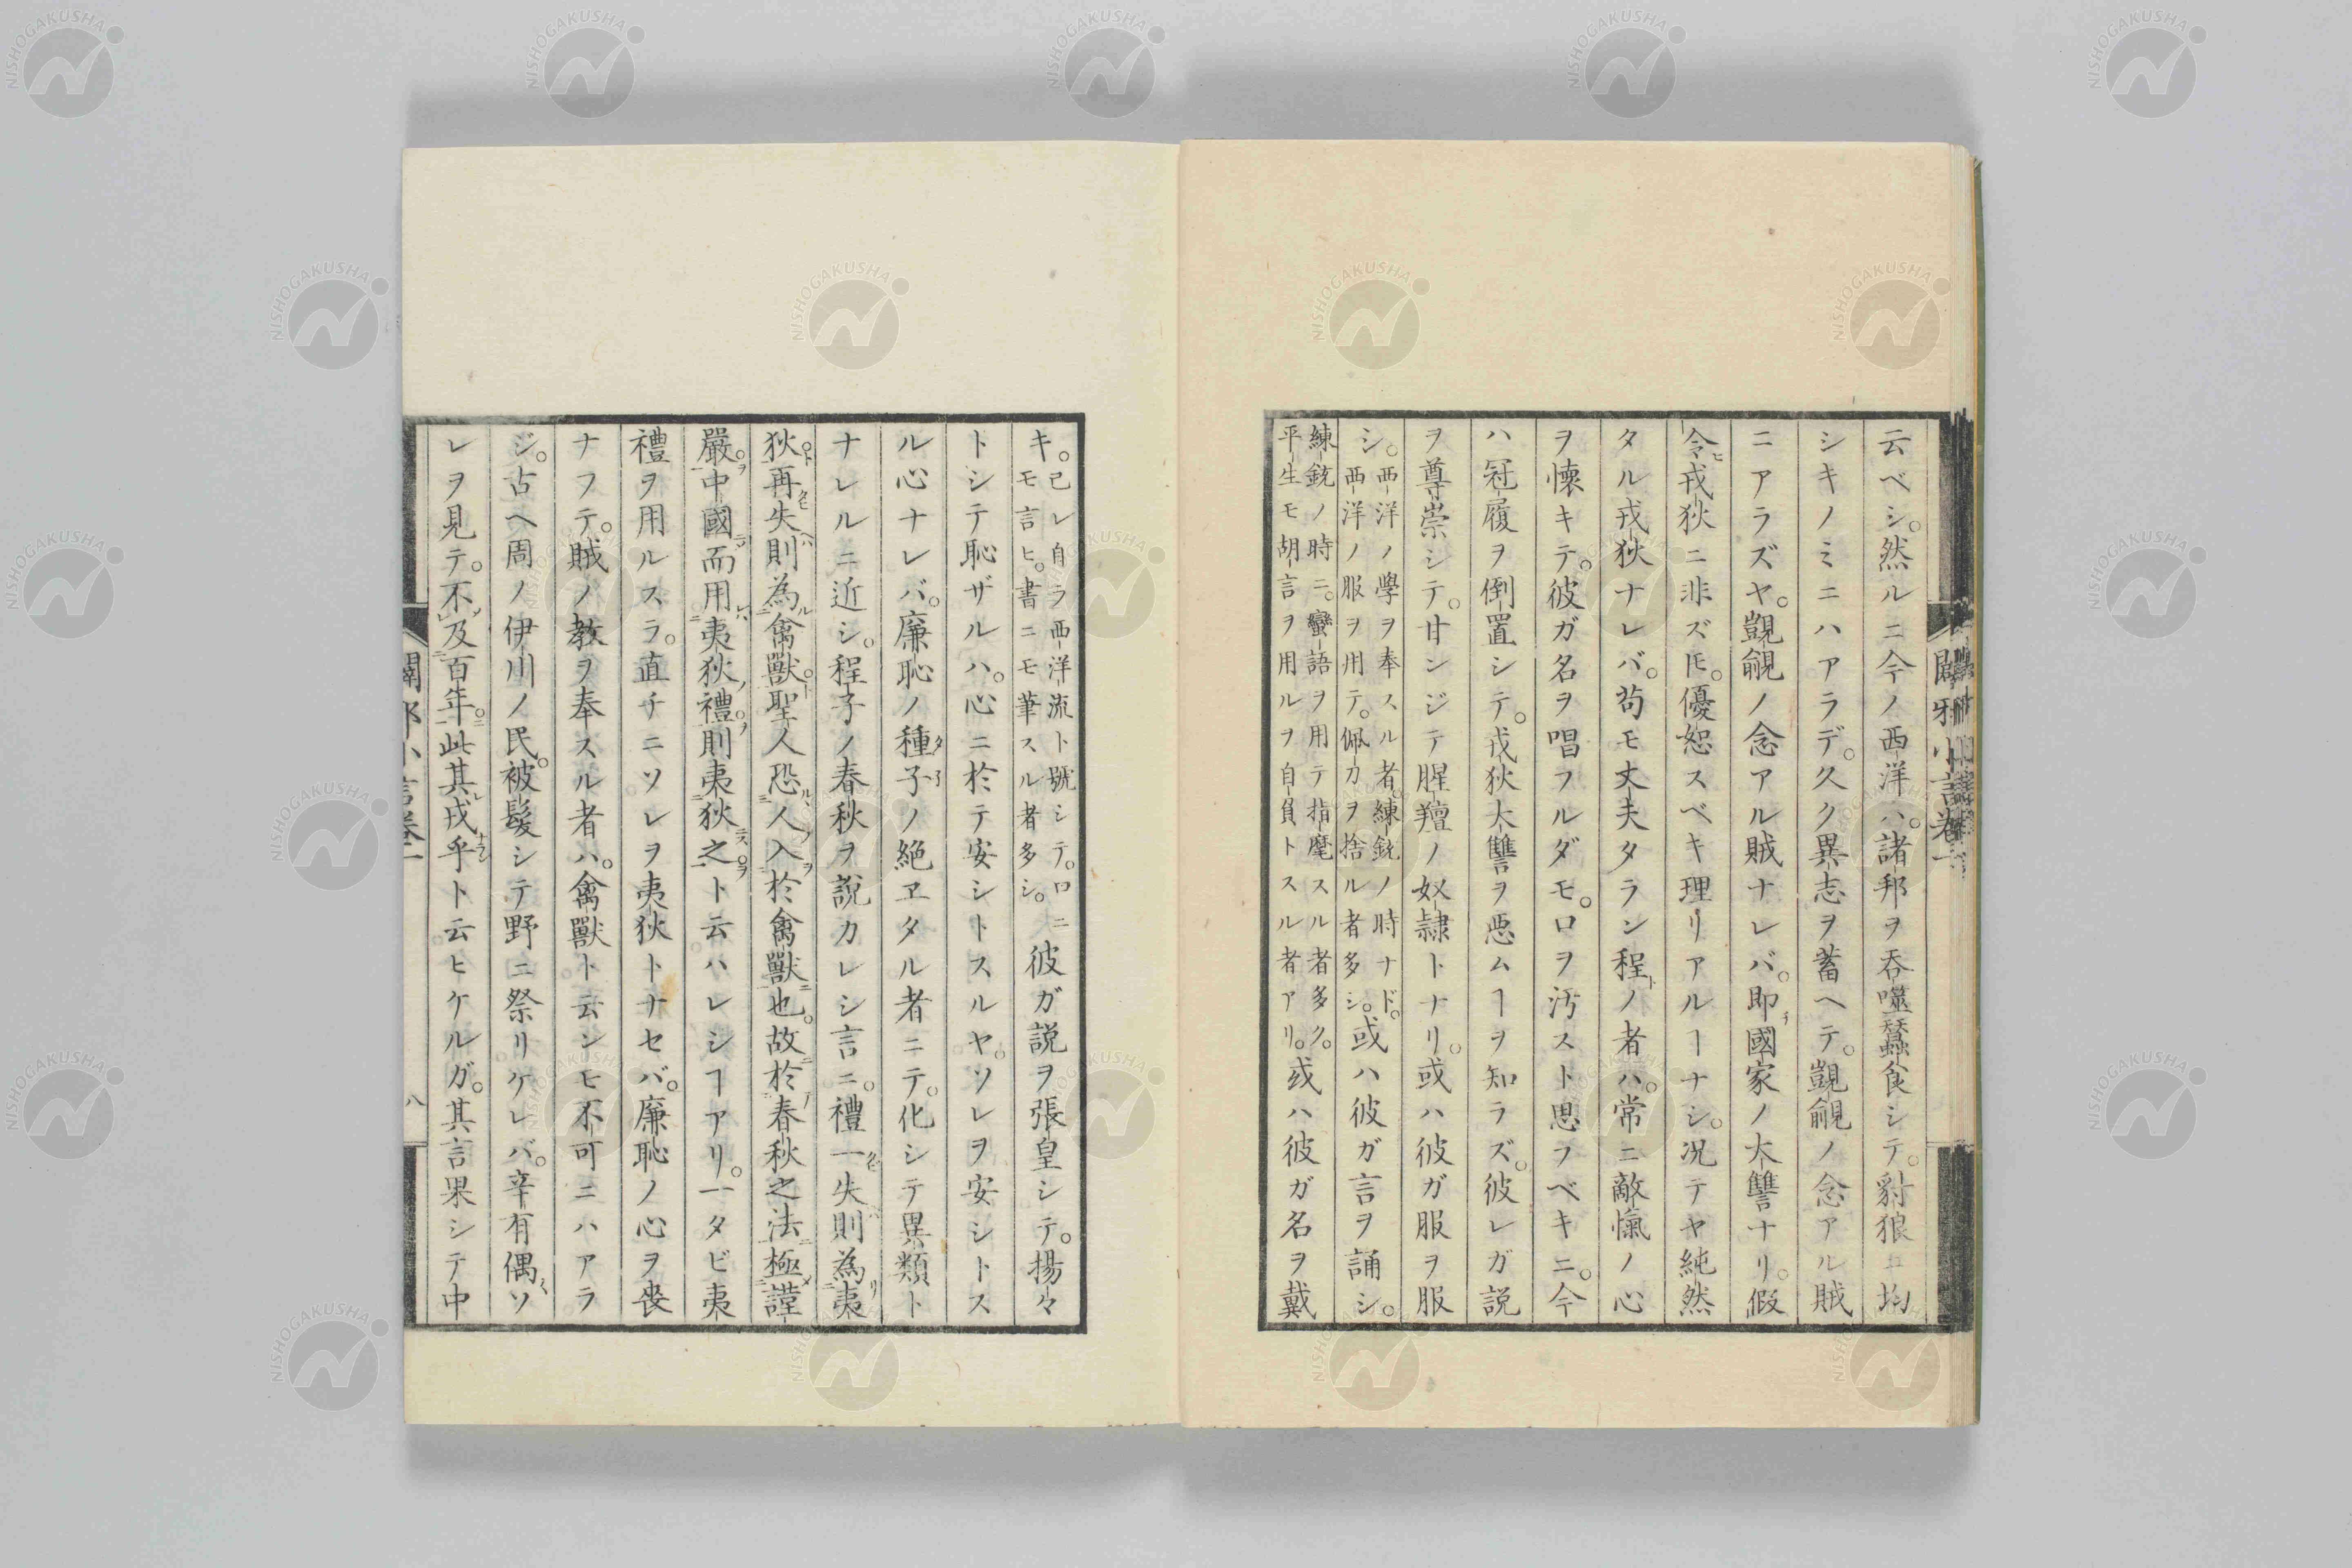 云ベシ。然ルニ今ノ西洋ハ。諸邦ヲ呑噬蠶食シテ。豺狼ニ均
シキノミニハアラデ。久ク異志ヲ蓄ヘテ。覬覦ノ念アル賊
ニアラズヤ。覬覦ノ念アル賊ナレバ。即チ國家ノ大讐ナリ。假
令ヒ戎狄ニ非ズ𪜈。優恕スベキ理リアルヿナシ。况テヤ純然
タル戎狄ナレバ。苟モ丈夫タラン程ノ者ハ。常ニ敵愾ノ心
ヲ懐キテ。彼ガ名ヲ唱フルダモ。口ヲ汚スト思フベキニ。今
ハ冠履ヲ倒置シテ。戎狄大讐ヲ惡ムヿヲ知ラズ。彼レガ説
ヲ尊崇シテ。甘ンジテ腥羶ノ奴隷トナリ。或ハ彼ガ服ヲ服
シ。西洋ノ學ヲ奉スル者。練銃ノ時ナド。西洋ノ服ヲ用テ。佩刀ヲ捨ル者多シ。或ハ彼ガ言ヲ誦シ。
練銃ノ時ニ。蠻語ヲ用テ指麾スル者多ク。平生モ胡言ヲ用ルヲ自負トスル者アリ。或ハ彼ガ名ヲ戴
キ。己レ自ラ西洋流ト號シテ。口ニモ言ヒ。書ニモ筆スル者多シ。彼ガ説ヲ張皇シテ。揚々
トシテ恥ザルハ。心ニ於テ安シトスルヤ。ソレヲ安シトス
ル心ナレバ。廉恥ノ種子ノ絶ヱタル者ニテ。化シテ異類ト
ナレルニ近シ。程子ノ春秋ヲ説カレシ言ニ。禮一失則為夷
狄。再失則為禽獸。聖人恐人入於禽獸也。故於春秋之法極謹
嚴。中國而用夷狄禮。則夷狄之。ト云ハレシヿアリ。一タビ夷
禮ヲ用ルスラ。直チニソレヲ夷狄トナセバ。廉恥ノ心ヲ喪
ナフテ。賊ノ教ヲ奉スル者ハ。禽獸ト云ンモ不可ニハアラ
ジ。古ヘ周ノ伊川ノ民。被髮シテ野ニ祭リケレバ。辛有偶々ソ
レヲ見テ。不及百年。此其戎乎ト云ヒケルガ。其言果シテ中
闢邪小言卷一
八